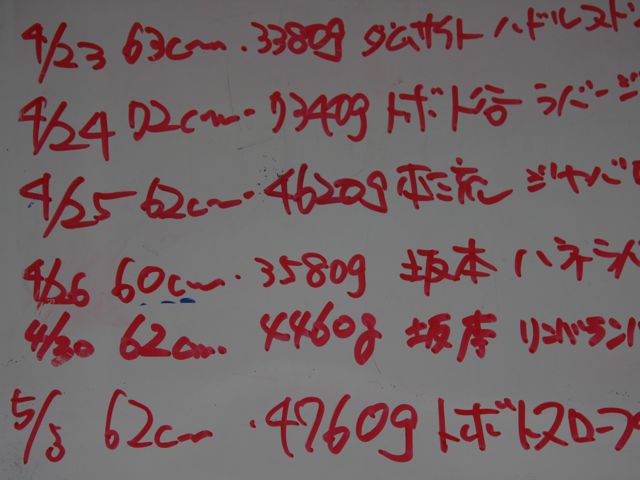 4/23 63cm・3380g ダムサイト ハドルスト
4/24 72cm・7340g トボト谷 ラバージ
4/25 62cm・4620g 本流 ジャバロ
4/26 60cm・3580g 坂本 ハネラバ
4/30 62cm 4460g 坂本 リンバラン
5/5 62cm・4760g トボトスロープ